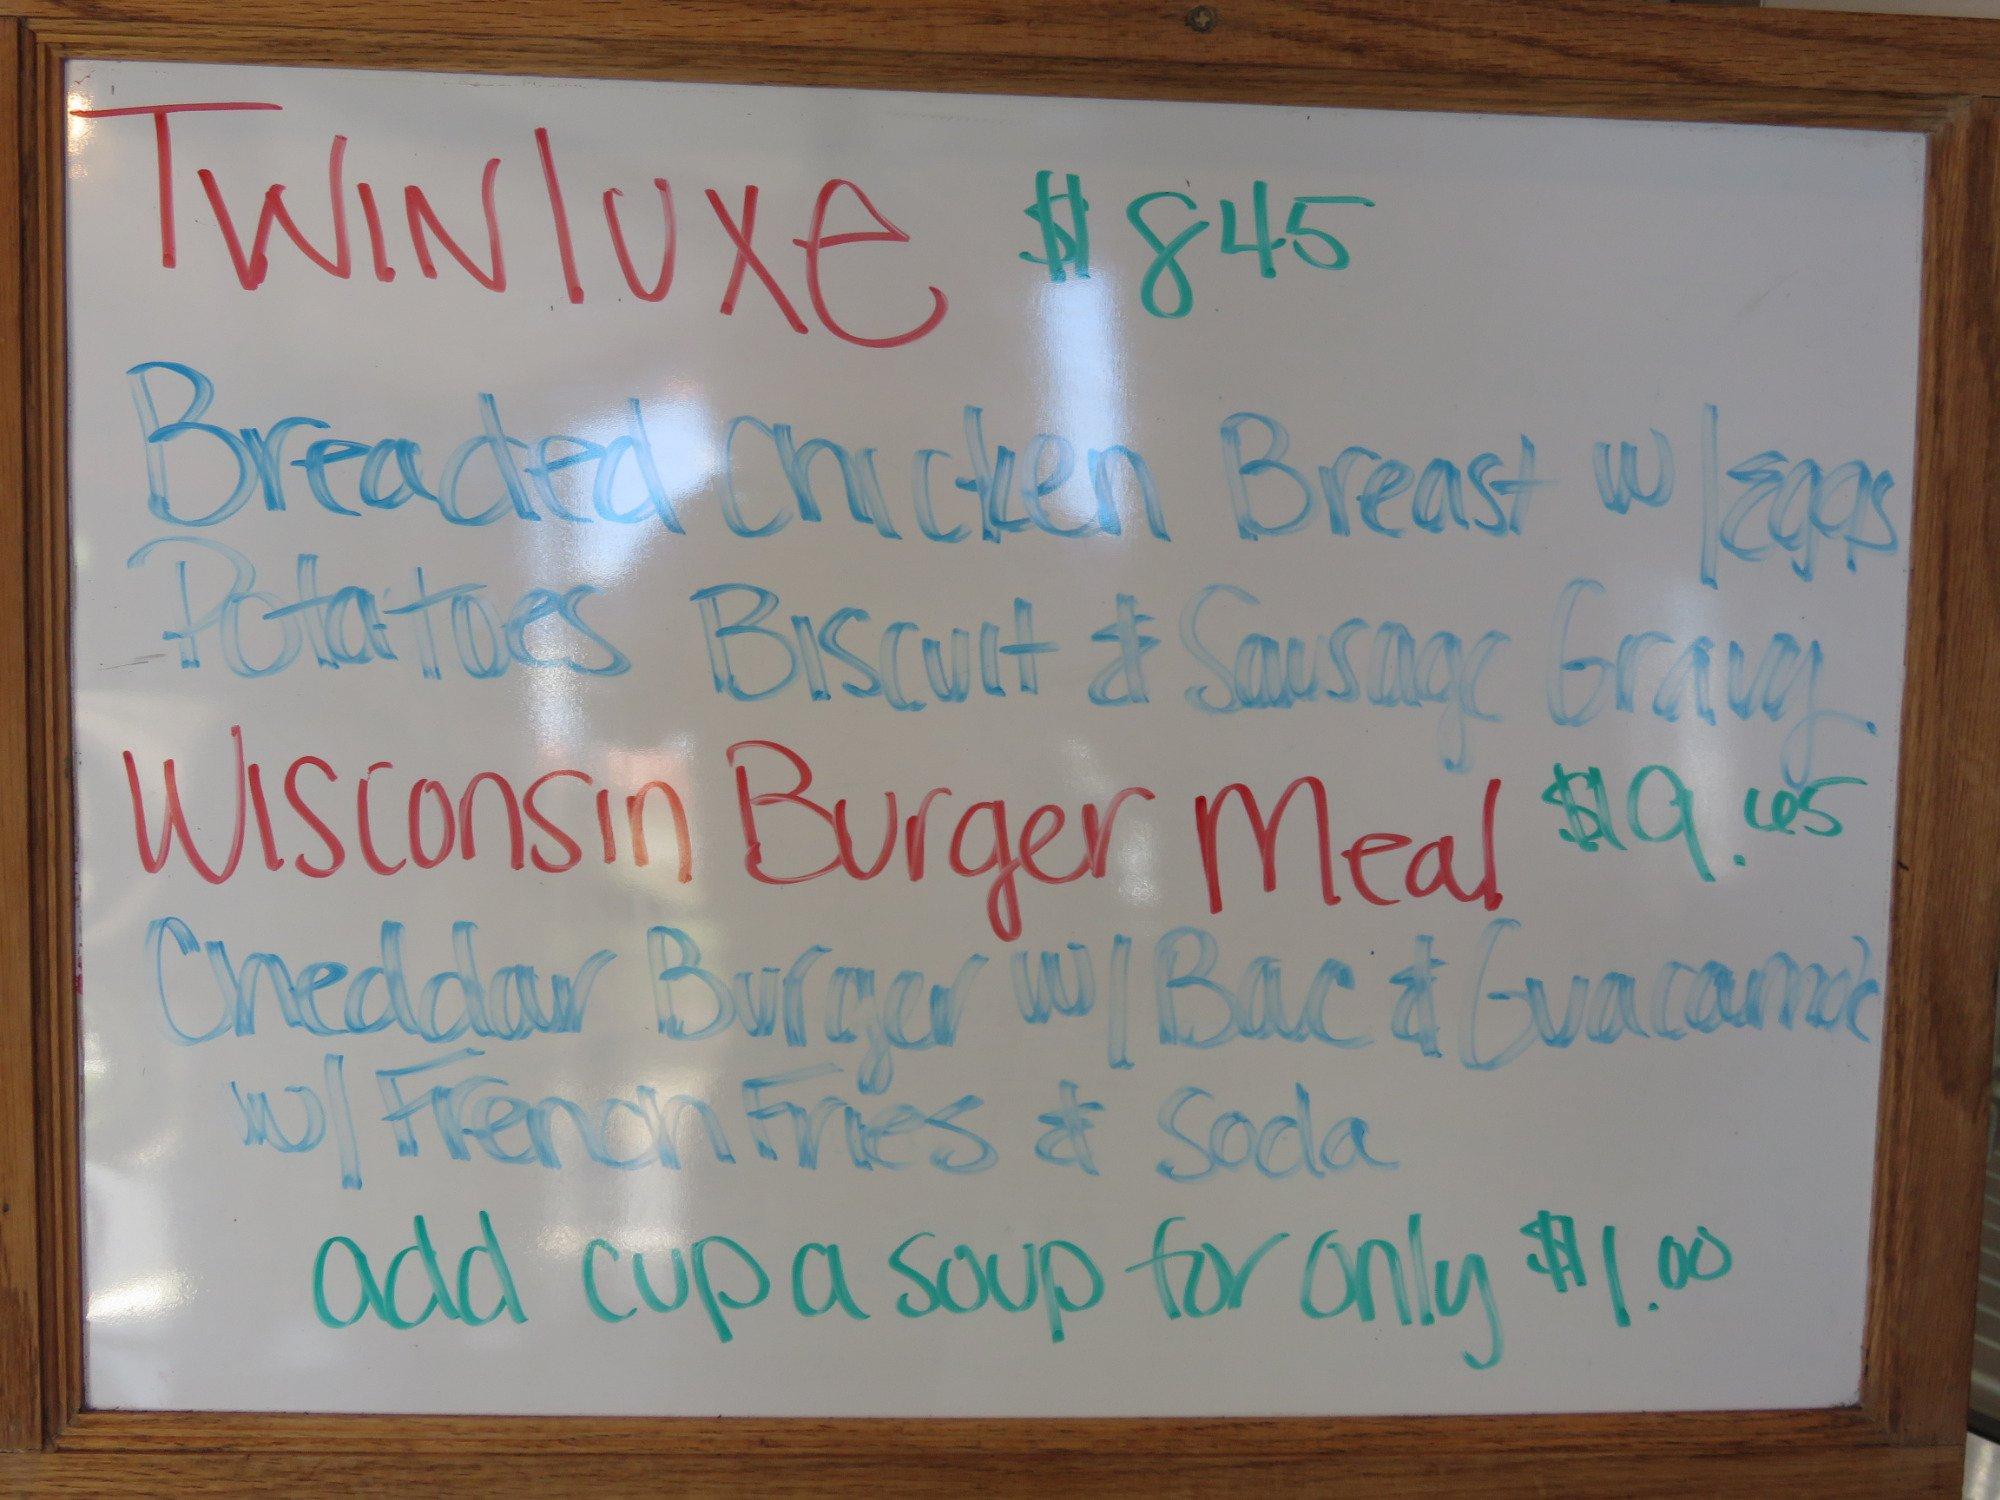 Twinluxe $845
Breaded chicken Breast w/eggs
Potatoes Biscuit & Sausage Gravy
Wisconsin Burger Meal $9.45
Cheddar Burger w/ Bac & Guacamole
w/ French Fries & Soda
add cup a soup for only $1.00